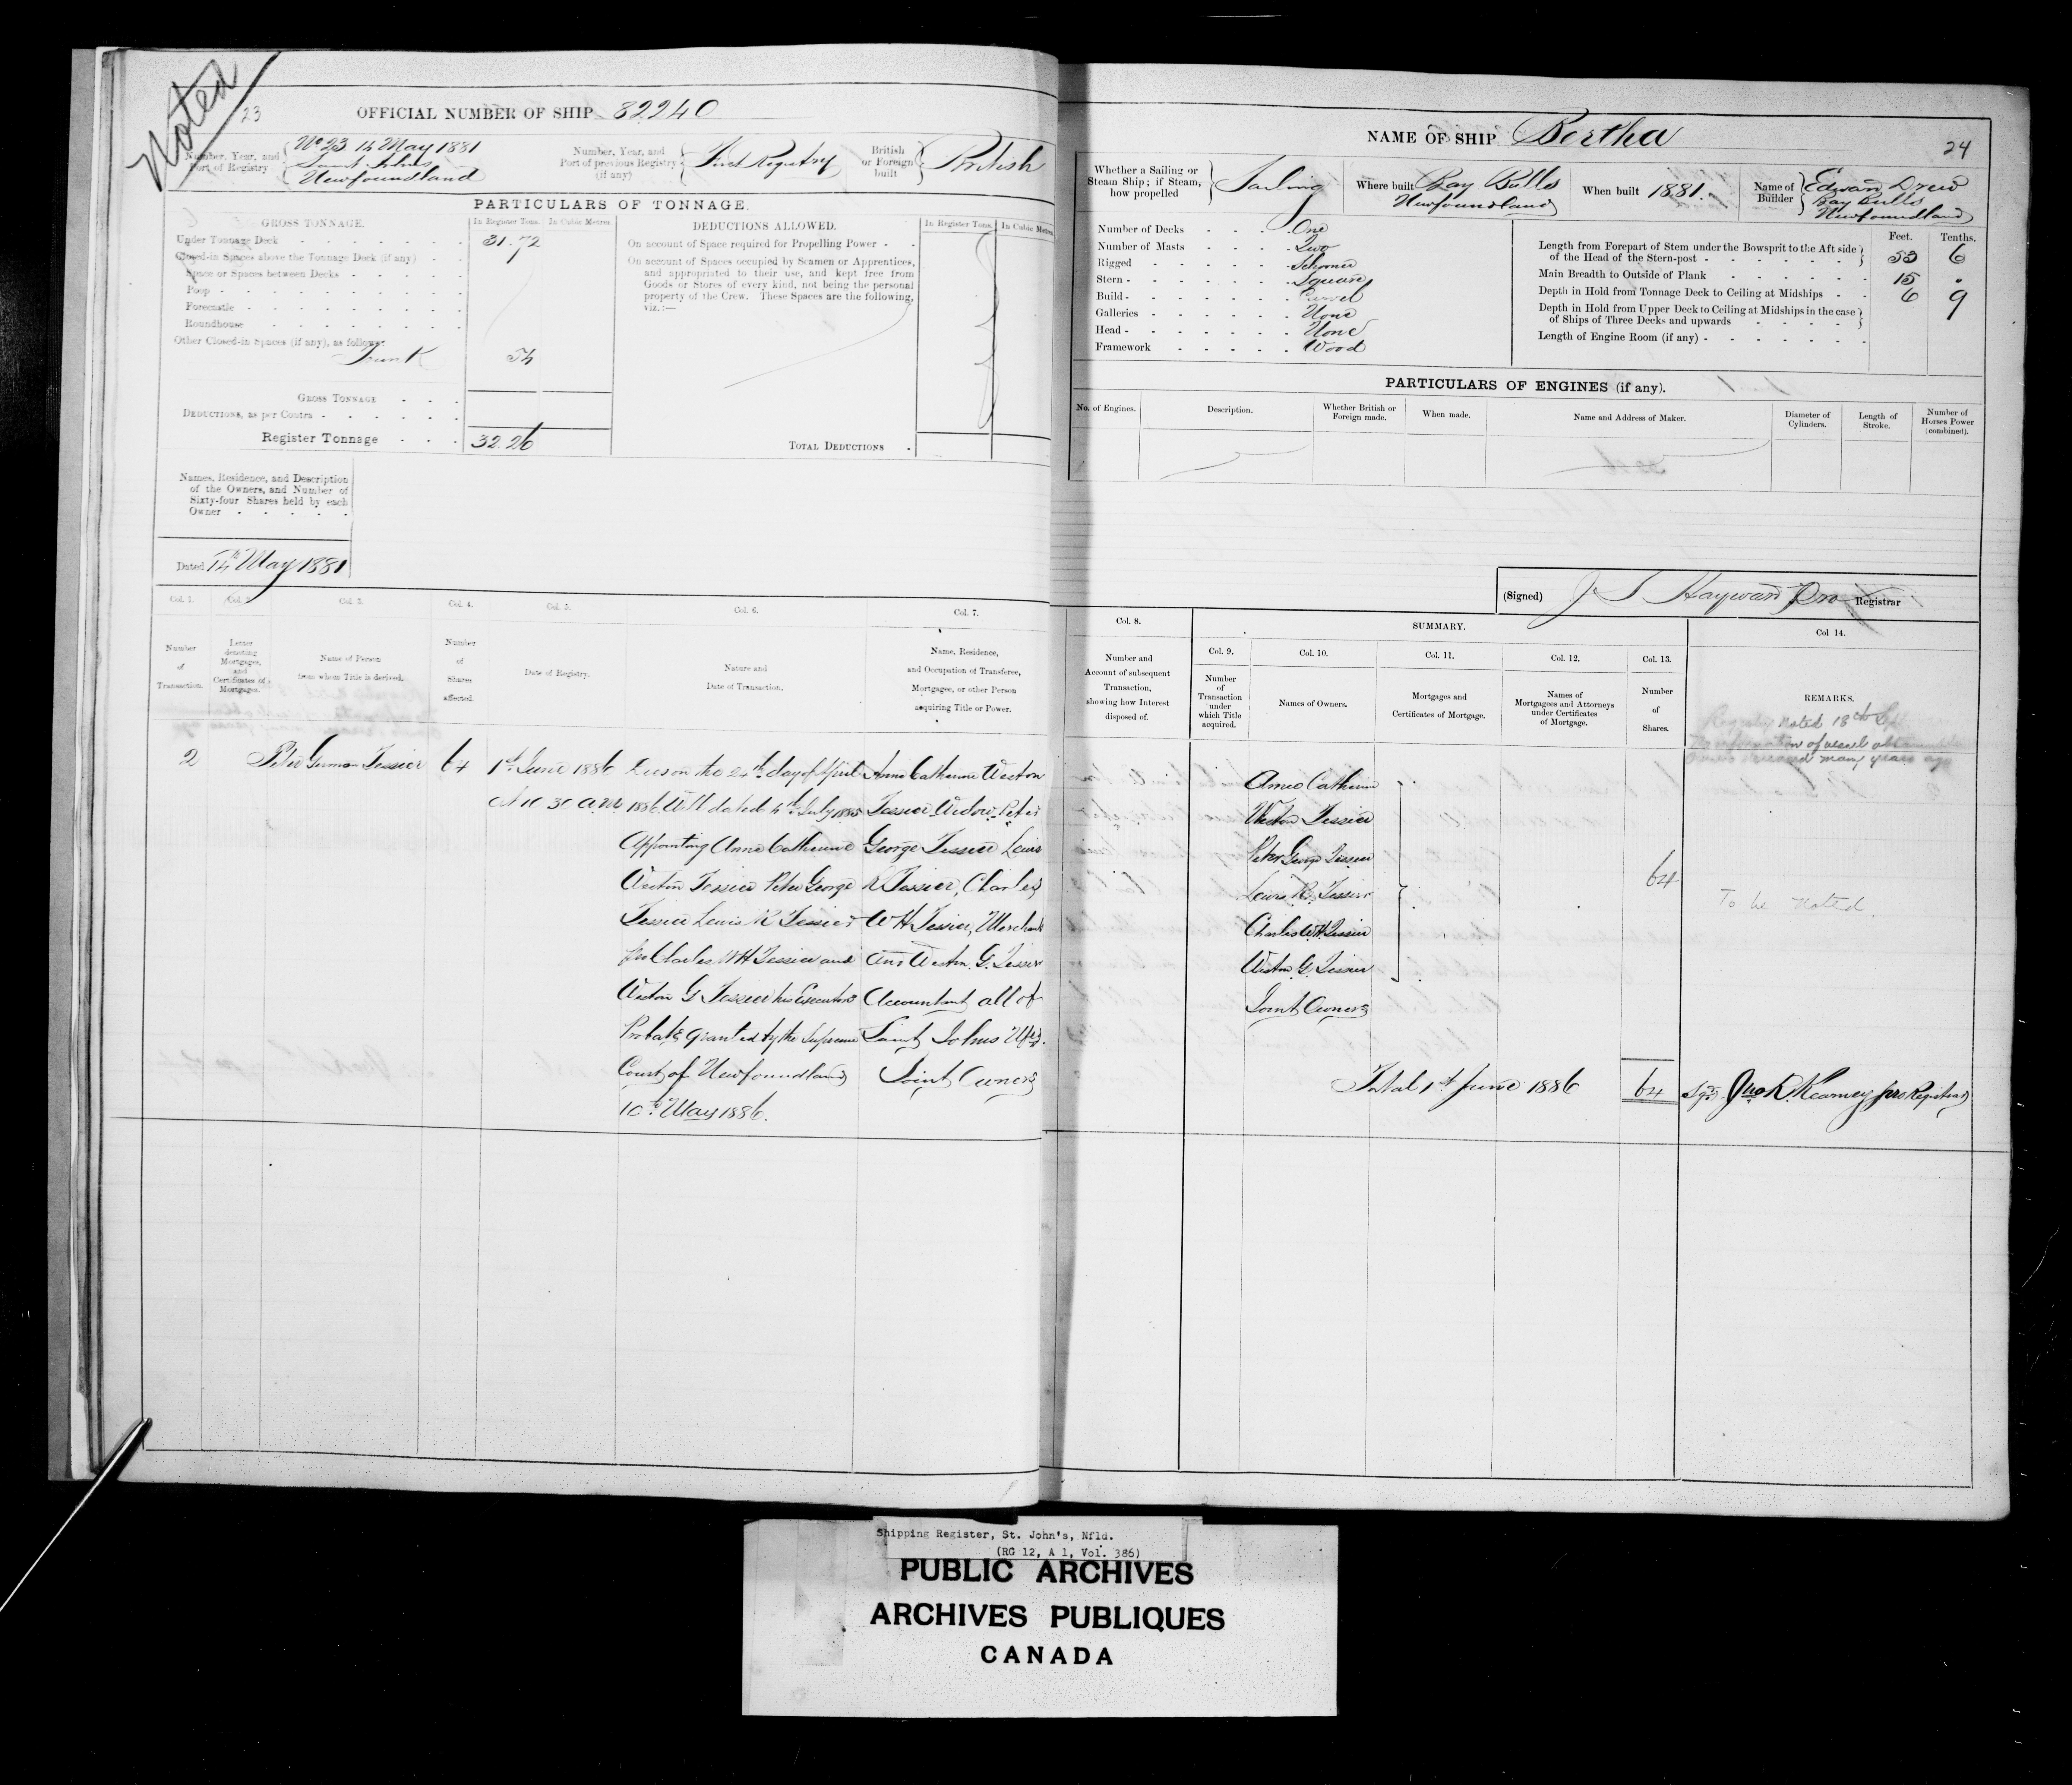 Noted
23
OFFICIAL NUMBER OF SHIP 82240
Number, Year, and Port of Registry
No 23 14 May 1881
Saint Johns
Newfoundland
Number, Year, and Port of previous Registry (if any)
First Registry
British or Foreign built
British
PARTICULARS OF TONNAGE.
GROSS TONNAGE.
In Register Tons.
In Cubic Metres.
Under Tonnage Deck
31.72
Closed-in Spaces above the Tonnage Deck (if any)
Space or Spaces between Decks
Poop
Forecastle
Roundhouse
Other Closed-in Spaces (if any), as follows:
Trunk
54
GROSS TONNAGE
DEDUCTIONS, as per Contra
Register Tonnage
32.26
DEDUCTIONS ALLOWED.
In Register Tons.
In Cubic Metres.
On account of Space required for Propelling Power
On account of Spaces occupied by Seamen or Apprentices,
and appropriated to their use, and kept free from
Goods or Stores of every kind, not being the personal
property of the Crew. These Spaces are the following,
viz.:—
TOTAL DEDUCTIONS
Names, Residence, and Description
of the Owners, and Number of
Sixty-four Shares held by each
Owner
Dated 14th May 1881
Col. 1.
Number of Transaction.
Col. 2.
Letter denoting Mortgages, and Certificates of Mortgages.
Col. 3.
Name of Person from whom Title is derived.
Col. 4.
Number of Shares affected.
Col. 5.
Date of Registry.
Col. 6.
Nature and Date of Transaction.
Col. 7.
Name, Residence, and Occupation of Transferee, Mortgagee, or other Person acquiring Title or Power.
2
Peter German Tessier
64
1st June 1886
At 10 30 a.m.
on the 24th day of April
1886. Will dated 4th July 1885
Appointing Anne Catherine
Weston Tessier Peter George
Tessier Lewis R Tessier
Charles W H Tessier and
Weston G Tessier his Executors
Probate granted by the Supreme
Court of Newfoundland
10th May 1886.
Anne Catherine Weston
Tessier Widow Peter
George Tessier Lewis
R Tessier, Charles
W H Tessier, Merchants
and Weston G. Tessier
Accountant all of
Saint Johns Nfld.
Joint Owners
NAME OF SHIP Bertha
24
Whether a Sailing or Steam Ship; if Steam, how propelled
Sailing
Where built
Bay Bulls
Newfoundland
When built 1881.
Name of Builder
Edwan Drew
Bay Bulls
Newfoundland
Number of Decks
One
Number of Masts
Two
Rigged
Schooner
Stern
Square
Build
Carvel
Galleries
None
Head
None
Framework
Wood
Feet.
Tenths.
Length from Forepart of Stem under the Bowsprit to the Aft side of the Head of the Stern-post
53 6
Main Breadth to Outside of Plank
15 .
Depth in Hold from Tonnage Deck to Ceiling at Midships
6 9
Depth in Hold from Upper Deck to Ceiling at Midships in the case of Ships of Three Decks and upwards
Length of Engine Room (if any)
PARTICULARS OF ENGINES (if any).
No. of Engines.
Description.
Whether British or Foreign made.
When made.
Name and Address of Maker.
Diameter of Cylinders.
Length of Stroke.
Number of Horses Power (combined).
(Signed) J S Hayward Pro Registrar
Col. 8.
Number and Account of subsequent Transaction, showing how Interest disposed of.
SUMMARY.
Col. 9.
Number of Transaction under which Title acquired.
Col. 10.
Names of Owners.
Col. 11.
Mortgages and Certificates of Mortgage.
Col. 12.
Names of Mortgagees and Attorneys under Certificates of Mortgage.
Col. 13.
Number of Shares.
Col 14.
REMARKS.
Registry noted 18th Sept
information of vessel obtainable
Owners deceased many years ago
Anne Catherine
Weston Tessier
Peter George Tessier
Lewis R. Tessier
Charles W H Tessier
Weston G. Tessier
Joint Owners
64
To be noted.
Total 1st June 1886
64
Sgd. Jno R. Kearney pro Registrar
Shipping Register, St. John's, Nfld.
(RG 12, A 1, Vol. 386)
PUBLIC ARCHIVES
ARCHIVES PUBLIQUES
CANADA